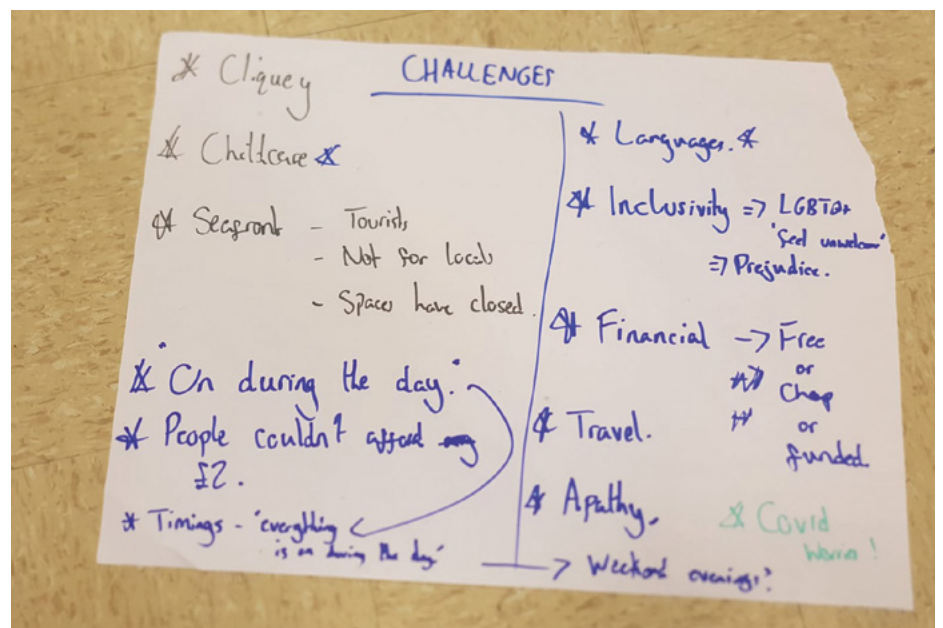 CHALLENGES
* Cliquey
* Childcare *
* Seafront - Tourists
- Not for locals
- Spaces have closed.
* "On during the day."
* People couldn't afford
£2.
* Timings - 'everything
is on during the day'
* Languages. *
* Inclusivity => LGBTQ+
'feel unwelcom'
=> Prejudice.
* Financial -> Free
or
Cheap
or
funded
* Travel.
* Apathy.
-> Weekend evenings?
* Covid
Worries!